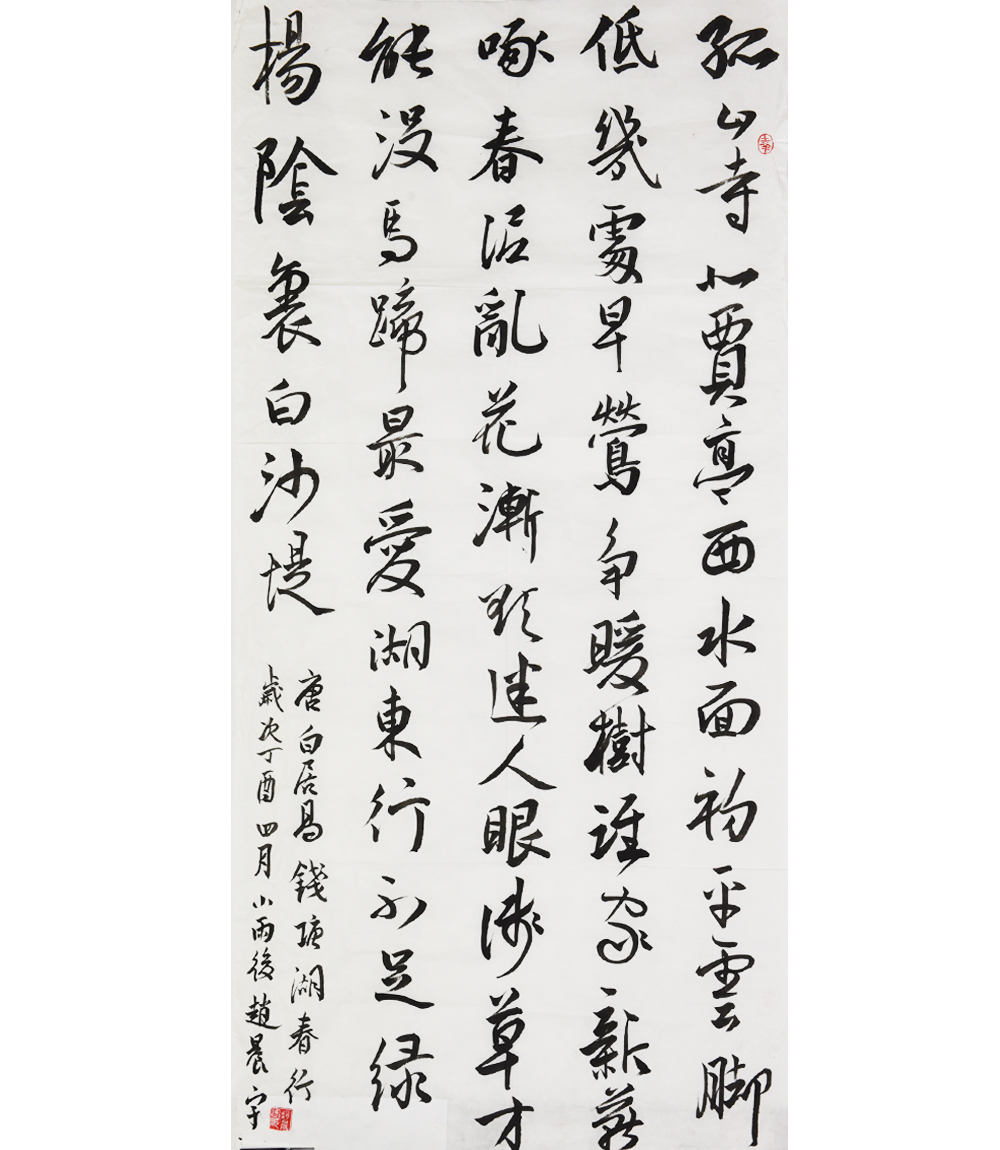 孤山寺北賈亭西水面初平雲脚
低幾處早鶯争暖樹誰家新燕
啄春泥亂花漸欲迷人眼淺草才
能没馬蹄最愛湖東行不足绿
楊陰裏白沙堤
唐白居易錢塘湖春行
歲次丁酉四月小雨後趙晨宇